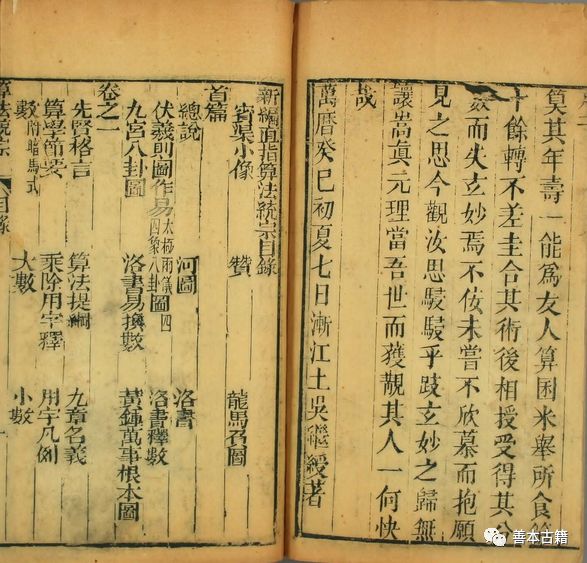 算其年壽一能爲友人算囷米舉所食
十餘轉不差圭合其術後相授受得其分
數而失玄妙焉不佞未嘗不欣慕而抱願
見之思今觀汝思駸駸乎跂玄妙之歸無
讓嵩眞元理當吾世而獲覯其人一何快
哉
萬曆癸巳初夏七日漸江士吳繼綬著
新編直指算法統宗目錄
首篇
賓渠小像 贊 龍馬負圖
總說 河圖 洛書
伏羲則圖作易 太極兩儀四象八卦圖四 洛書釋數
九宮八卦圖 洛書易換數 黃鍾萬事根本圖
卷之一
先賢格言 算法提綱 九章名義
算學節要 乘除用字釋 用字凡例
數附暗馬式 大數 小數
算法統宗 目錄 一
善本古籍